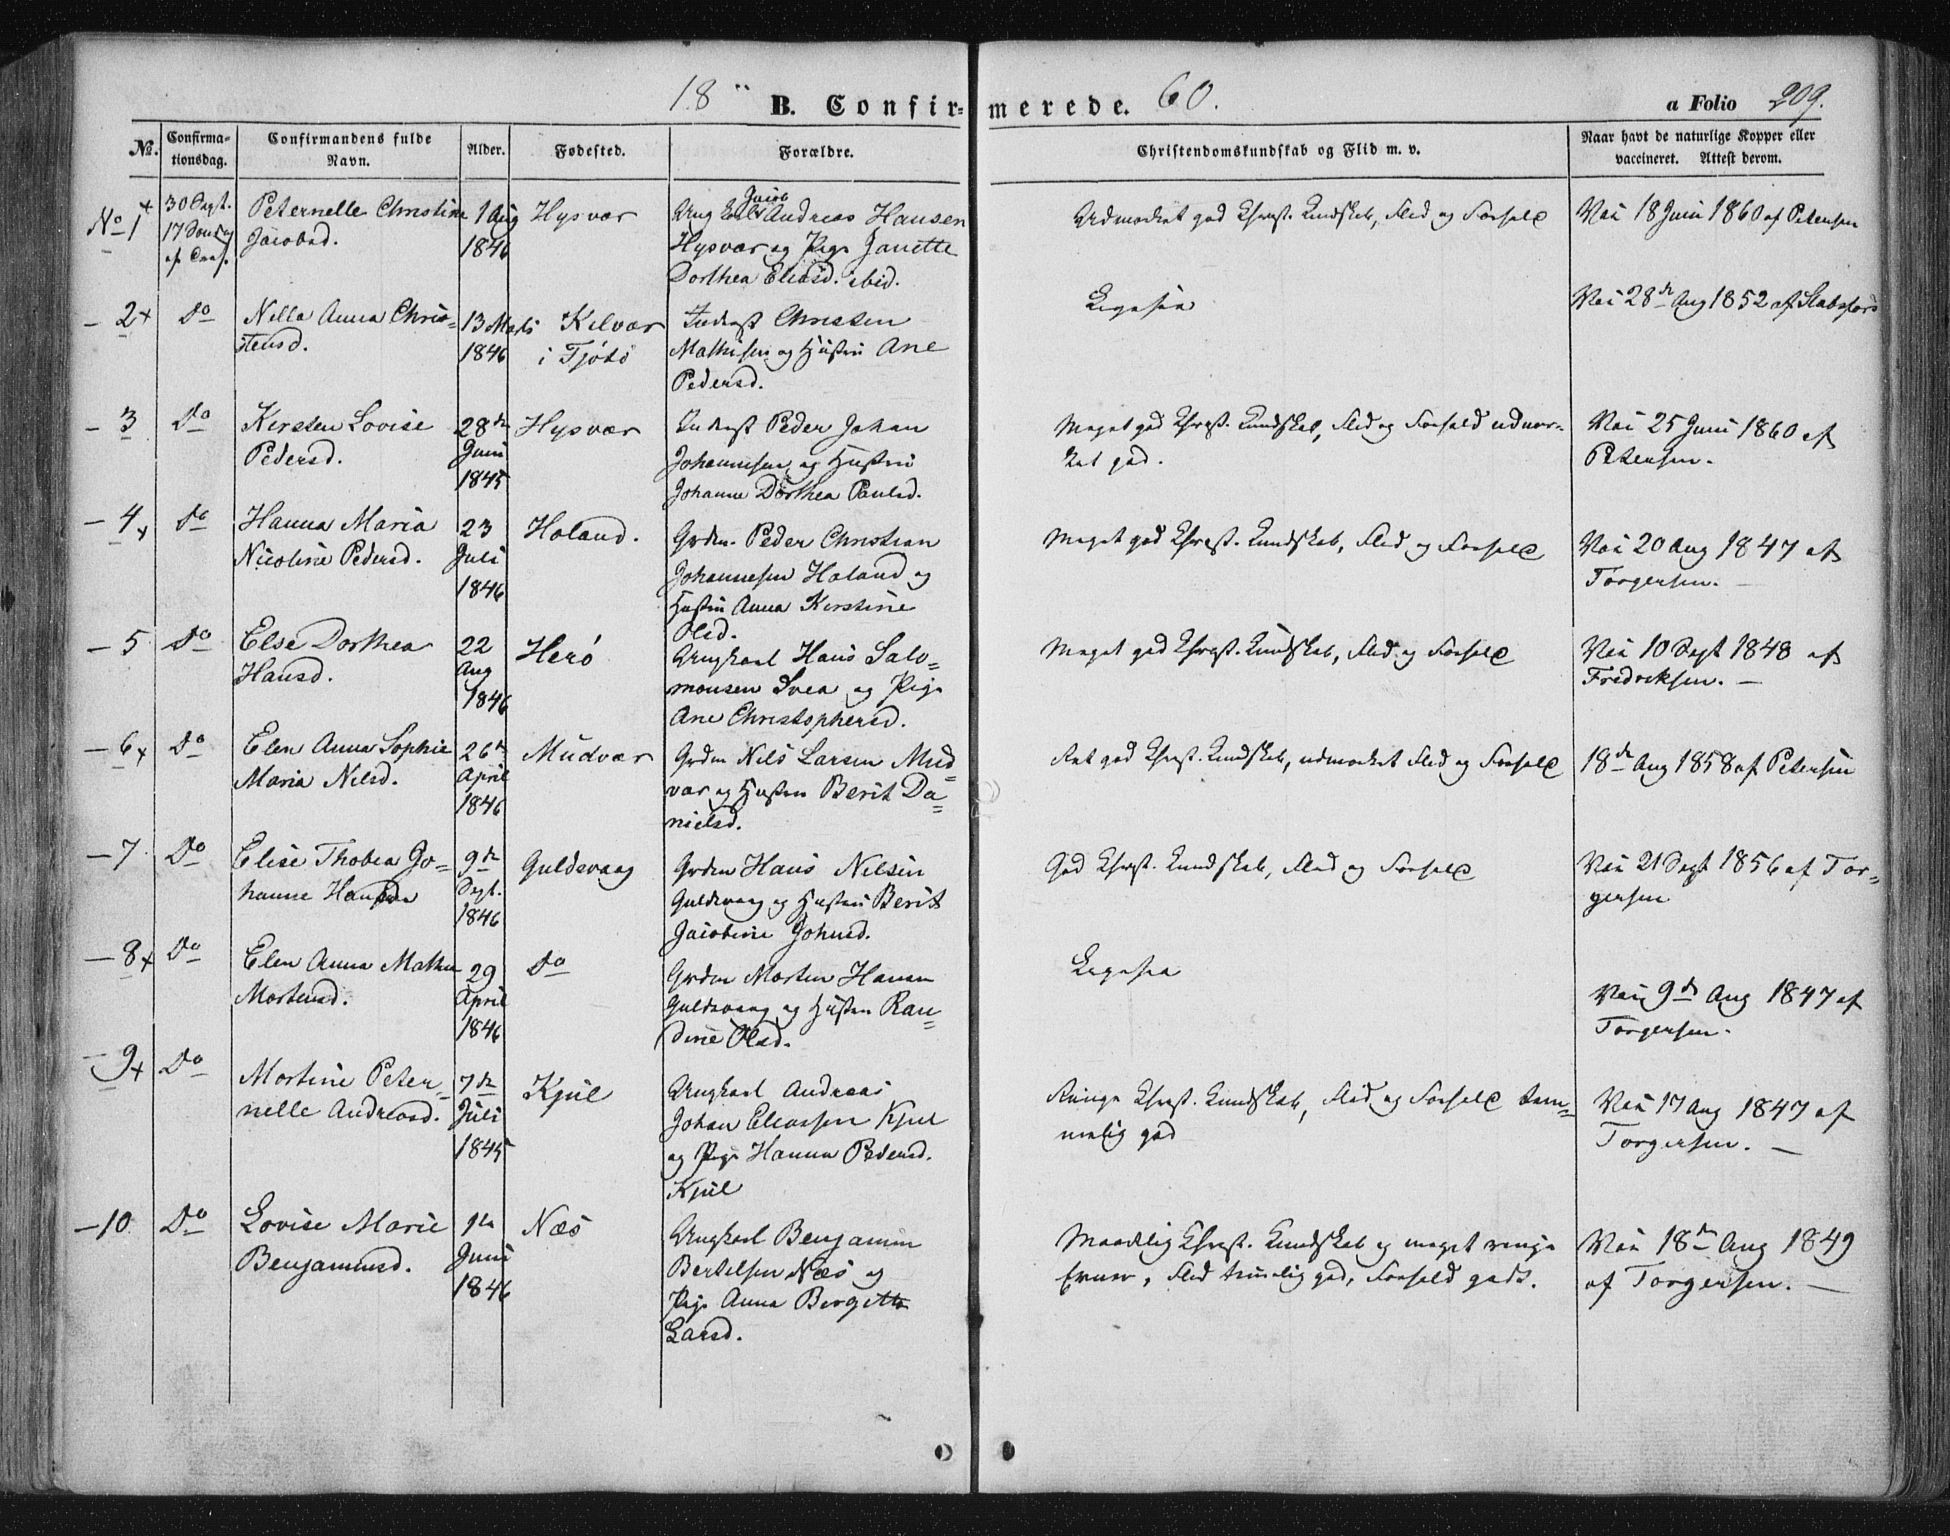 18 60.
B. Confirmerede.
a Folio 209.
No. Confirmationsdag. Confirmandens fulde Navn. Alder. Fødested. Forældre. Christendomskundskab og Flid m. v. Naar havt de naturlige Kopper eller vaccineret. Attest derom.
No 1 + 30 Sept. Peternelle Christine 1 Aug Hysvær Jacob
17 Jacobsd. 1846 Ung Andreas Hansen Udmærket god Christ. Kundskab, Flid og Forhold Vac 18 Juni 1860 af Petersen
Hysvær og Pige Janette
Dorthea Eliasd. ibid.
- 2 + Do Nella Anna Chris- 13 Marts Kilvær Inderst Christen Ligesaa Vac 28de Aug 1852 af
tensd. 1846 i Tjøtø Mathisen og Hustru Ane
Pedersd.
- 3 Do Kirsten Lovise 28de Hysvær Inderst Peder Johan Meget god Christ. Kundskab, Flid og Forhold udmær- Vac 25 Juni 1860 af
Pedersd. Juni Johannesen og Hustru ket god. Petersen.
1845 Johanne Dorthea Paulsd.
- 4 + Do Hanna Maria 23 Høland. Grdm. Peder Christian Meget god Christ. Kundskab, Flid og Forhold Vac 20 Aug 1847 af
Nicoline Pedersd. Juli Johannesen Høland og Torgersen. —
1846 Hustru Anna Kirstine
Olsd.
- 5 Do Else Dorthea 22 Herø Ungkarl Hans Salo- Meget god Christ. Kundskab, Flid og Forhold Vac 10 Sept 1848 af
Hansd. Aug monsen Svea og Pige Fredriksen. —
1846 Ane Christophersd.
- 6 + Do Elen Anna Sophie 26de Mudvær Grdm Nils Larsen Mud- Ret god Christ. Kundskab, udmærket Flid og Forhold 18de Aug 1858 af Petersen
Maria Nilsd. April vær og Hustru Berit Da-
1846 nielsd.
- 7 Do Elise Thobea Jo- 9de Guldsvaag Grdm Hans Nilsen God Christ. Kundskab, Flid og Forhold Vac 21 Sept 1856 af Tor-
hanne Hansd. Sept. Guldsvaag og Hustru Berit gersen
1846 Jacobine Johnsd.
- 8 + Do Elen Anna Mathea 29 Do Grdm Morten Hansen Ligesaa Vac 9de Aug 1847 af
Mortensd. April Guldsvaag og Hustru Ran- Torgersen.
1846 dine Olsd.
- 9 + Do Mortine Peter- 7de Kjul Ungkarl Andreas Ringe Christ. Kundskab, Flid og Forhold tem- Vac 17 Aug 1847 af
nelle Andreasd. Juli Johan Eliassen Kjul melig god Torgersen. —
1845 og Pige Hanna Pedersd.
Kjul
- 10 Do Lovise Marie 1ste Næs Ungkarl Benjamin Maadelig Christ. Kundskab og meget ringe Vac 18de Aug 1849
Benjaminsd. Juni Bertelsen Næs og Evner, Flid temmelig god, Forhold godt. af Torgersen. —
1846 Pige Anna Bergitte
Larsd.